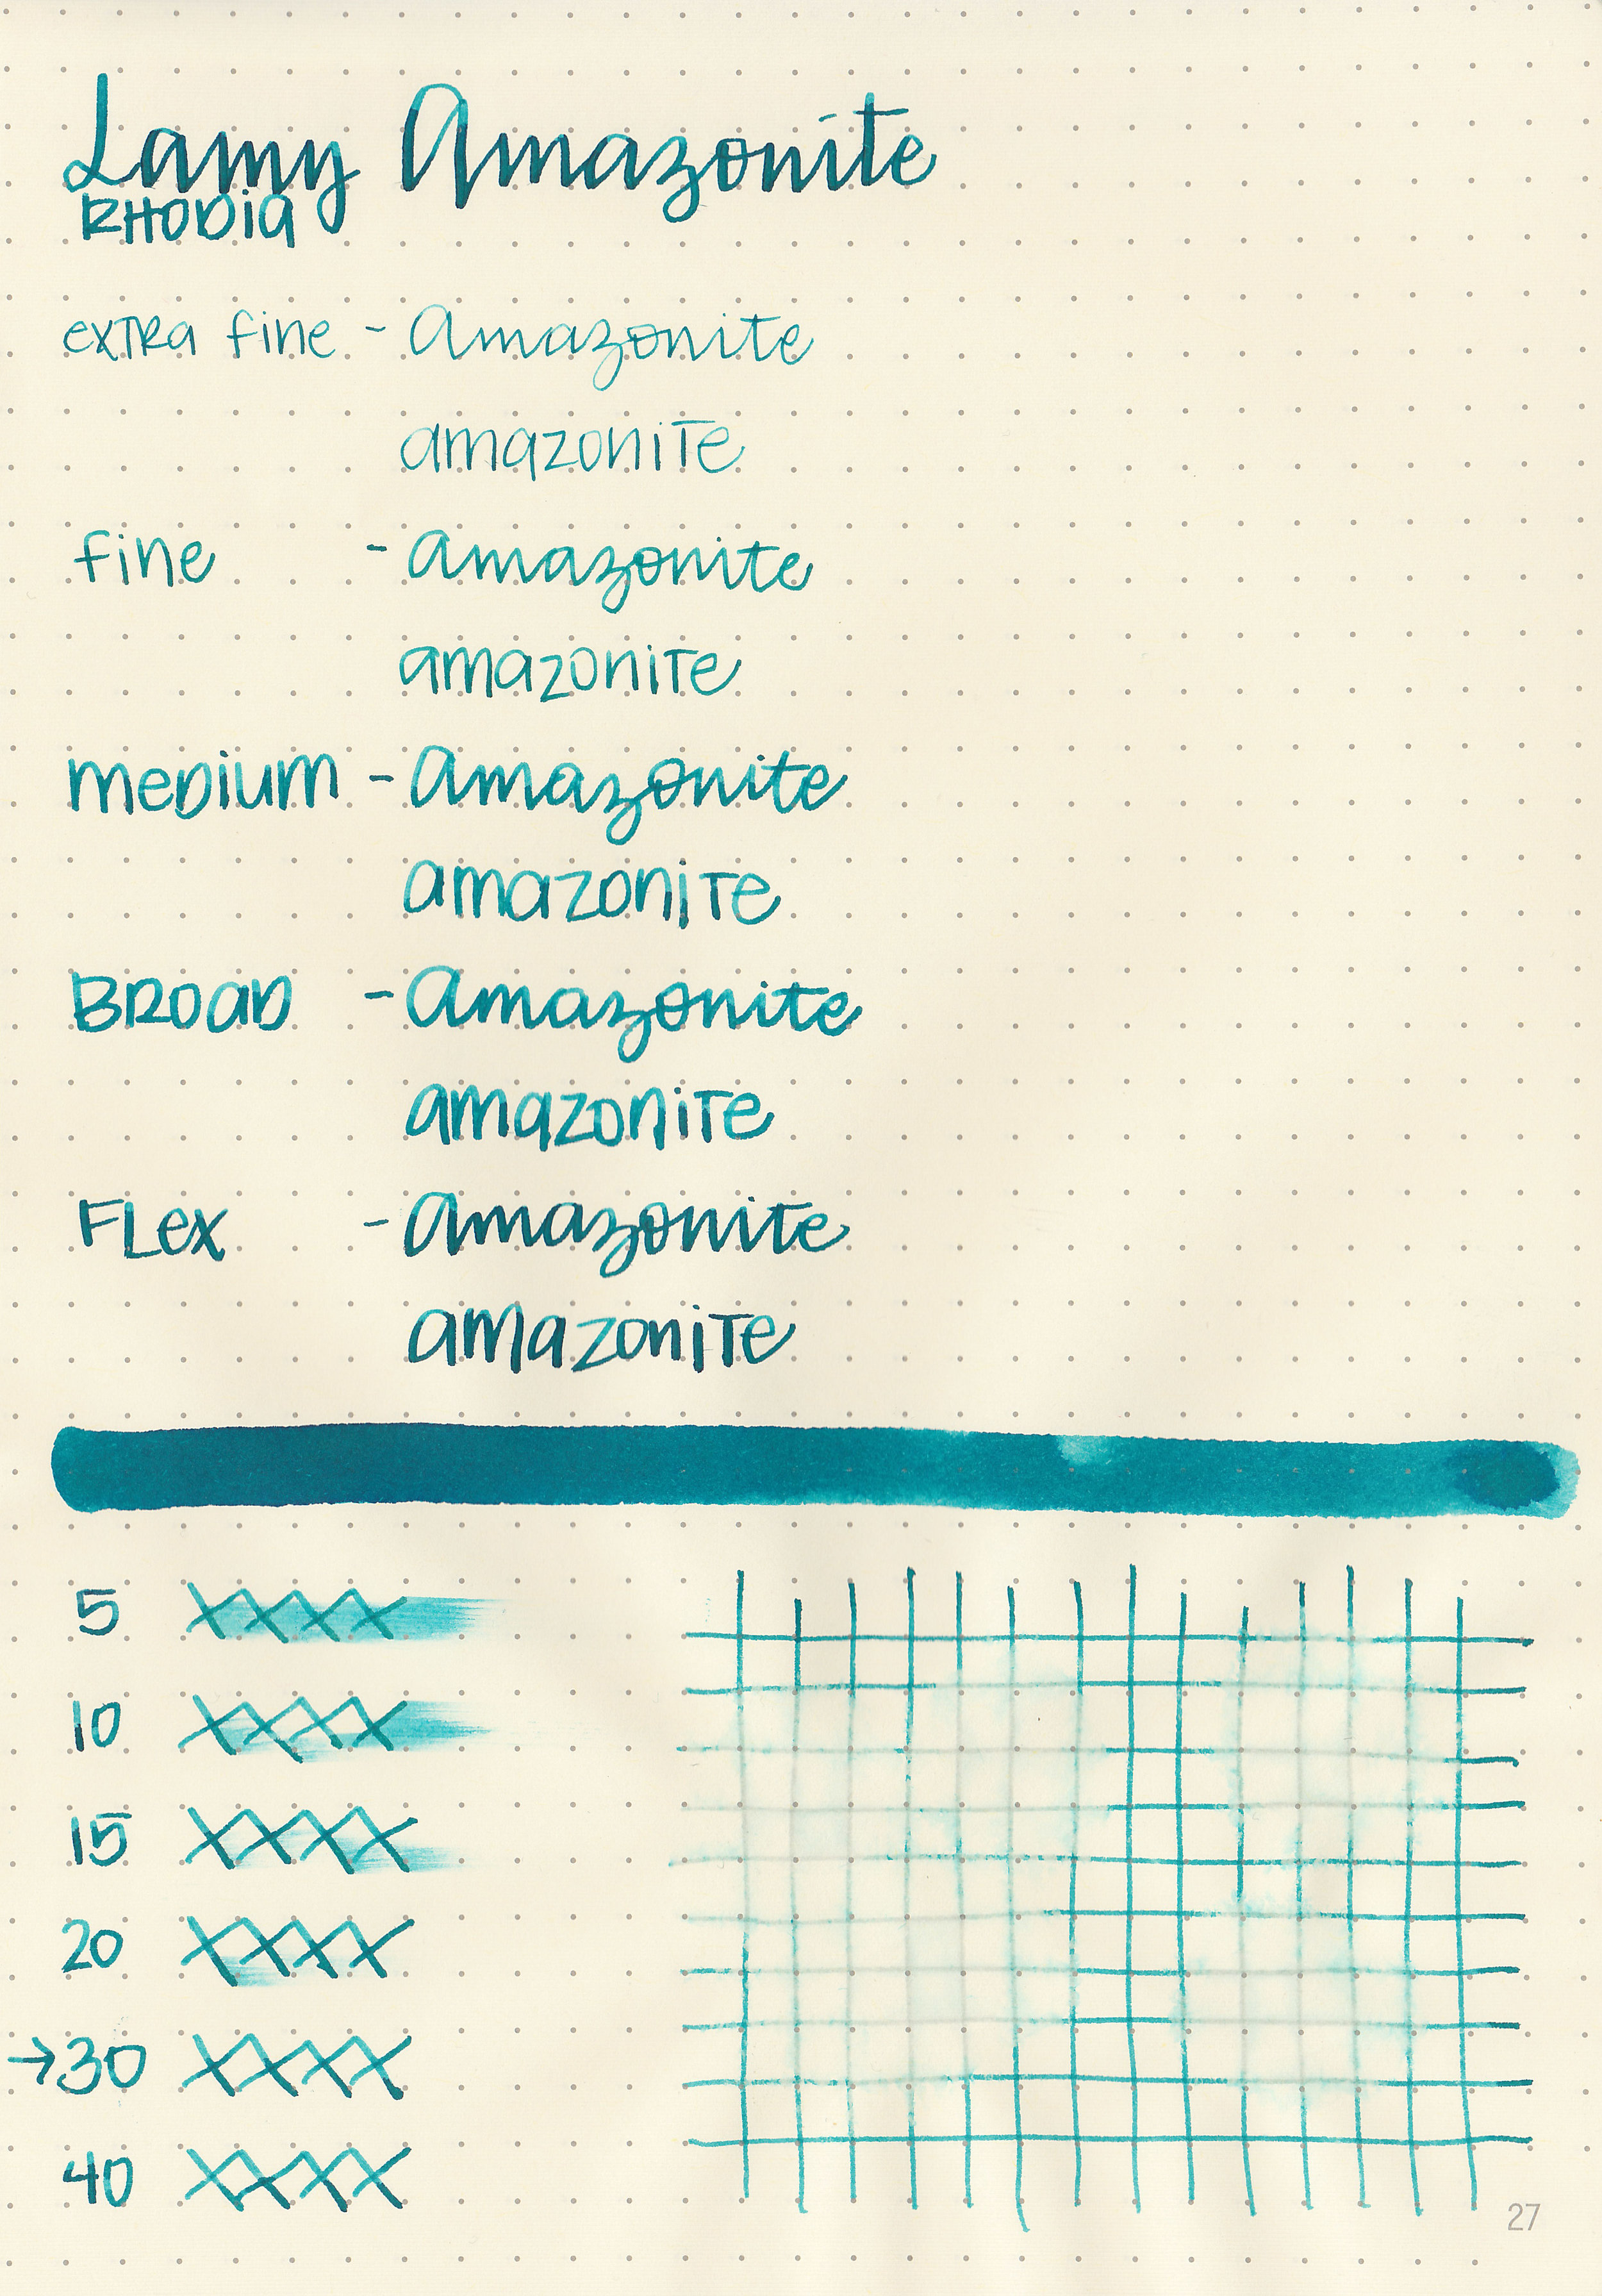 Lamy Amazonite
RHODIA
extra fine - Amazonite
amazonite
fine - Amazonite
amazonite
medium - Amazonite
amazonite
BROAD - Amazonite
amazonite
FLex - Amazonite
amazonite
5 XXXX
10 XXXX
15 XXXX
20 XXXX
→30 XXXX
40 XXXX
27